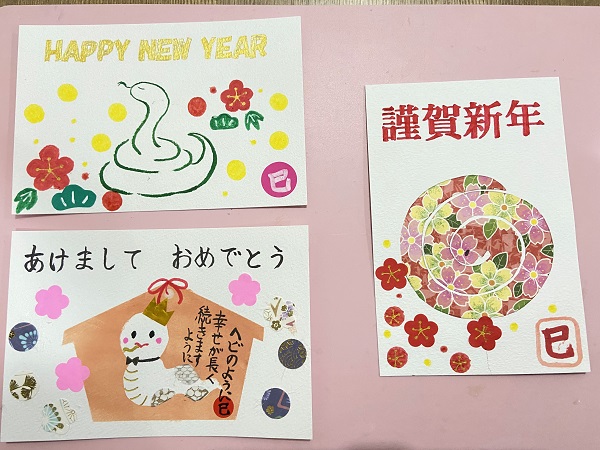 HAPPY NEW YEAR
巳
あけまして おめでとう
ヘビのように
幸せが長く
続きます
ように
巳
謹賀新年
巳